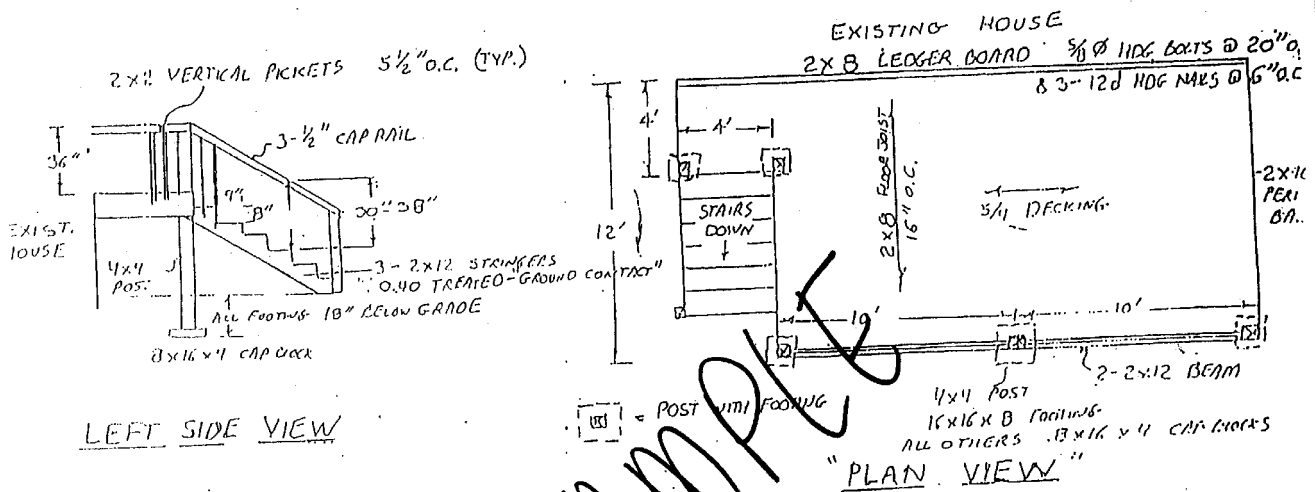 2x2 VERTICAL PICKETS 5½" O.C. (TYP.)
3-½" CAP RAIL
36"
9"
8"
30"-38"
EXIST.
HOUSE
4x4
POST
3- 2x12 STRINGERS
0.40 TREATED "GROUND CONTACT"
ALL FOOTING 18" BELOW GRADE
8x16x4 CAP BLOCK
LEFT SIDE VIEW
EXISTING HOUSE
2X8 LEDGER BOARD 5/8 Ø HDG BOLTS @ 20" O.
& 3-12d HDG NAILS @ 6" O.C
4'
4'
12'
STAIRS
DOWN
2x8 FLOOR JOIST
16" O.C.
5/4 DECKING
PERI
10'
10'
2-2x12 BEAM
4x4 POST
16x16x8 FOOTING
ALL OTHERS 8x16x4 CAP BLOCKS
= POST WITH FOOTING
"PLAN VIEW"